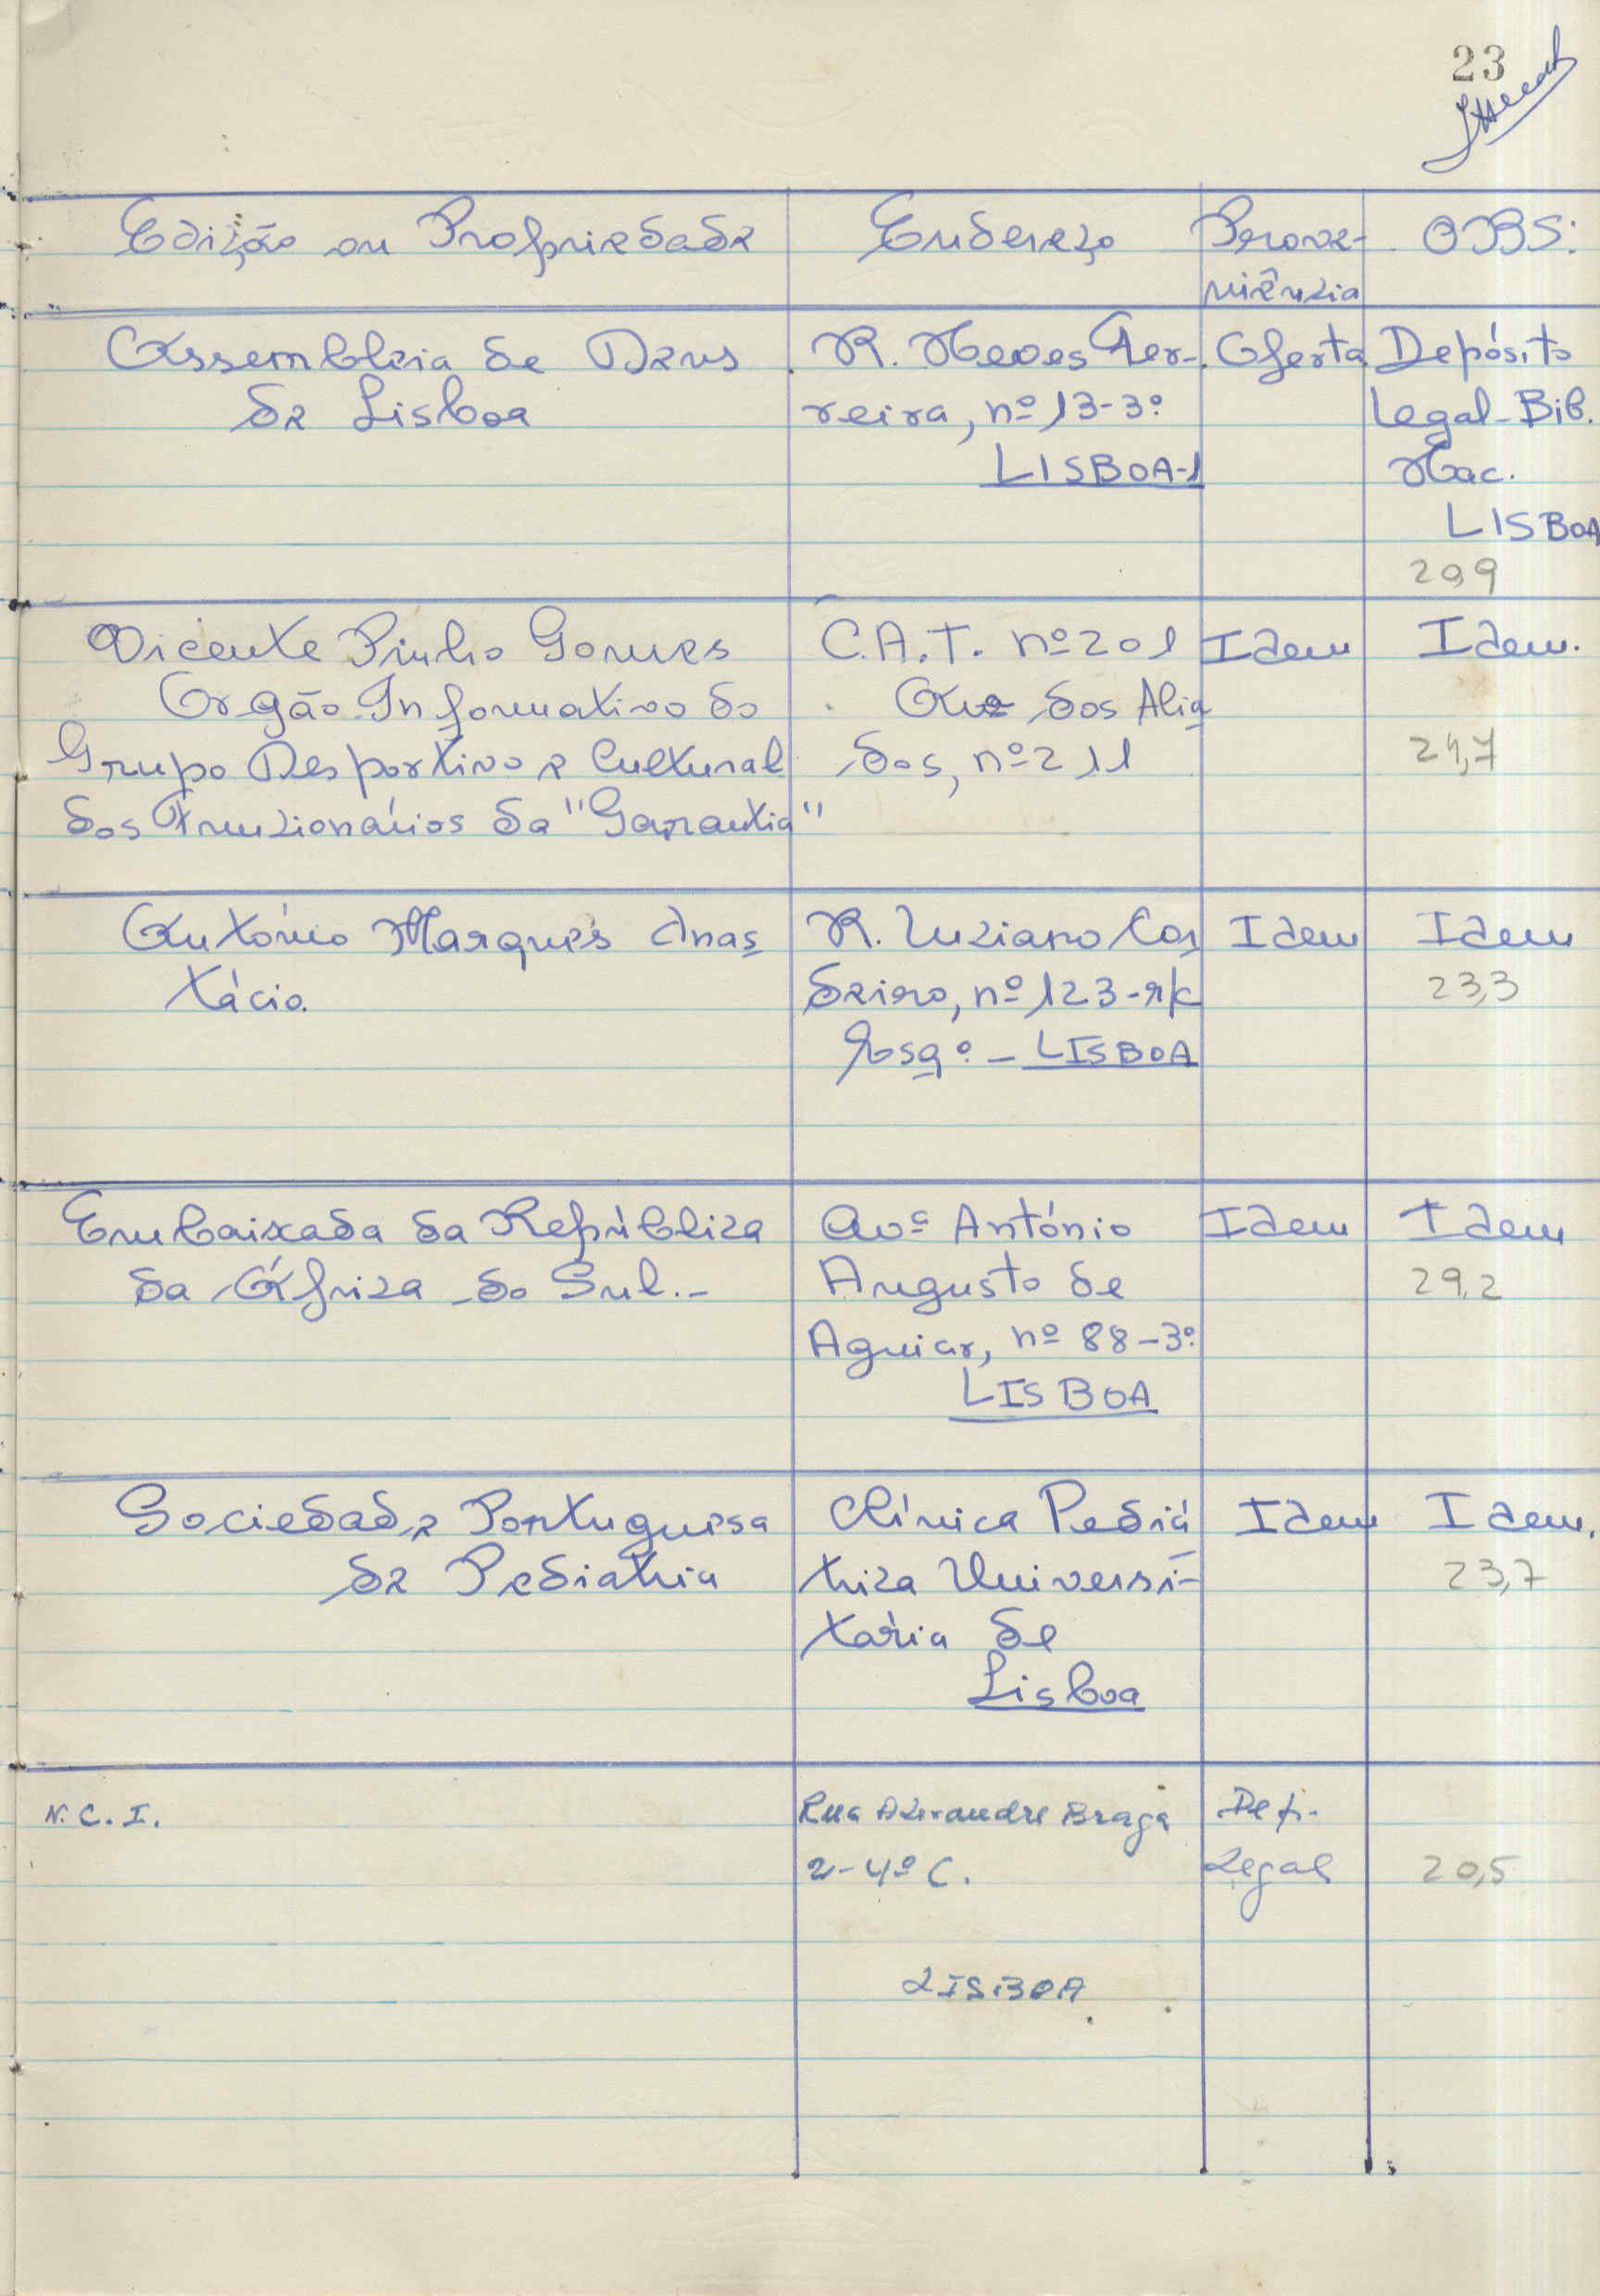 23
Edição ou Propriedade
Endereço
Prove-
niência
OBS:
Assembleia de Deus
de Lisboa
R. Neves Fer-
reira, nº 13-3º
LISBOA-1
Oferta
Depósito
Legal-Bib.
Nac.
LISBOA
20,9
Vicente Pinho Gomes
Orgão Informativo do
Grupo Desportivo e Cultural
dos Funcionários da "Garantia"
C.A.T. nº 201
Av. dos Alia
dos, nº 211
Idem
Idem.
24,7
António Marques Anas
tácio.
R. Luciano Cor
deiro, nº 123-r/c
Esqº - LISBOA
Idem
Idem
23,3
Embaixada da República
da África do Sul.-
Avª António
Augusto de
Aguiar, nº 88-3º
LISBOA
Idem
Idem
29,2
Sociedade Portuguesa
de Pediatria
Clínica Pediá
trica Universi-
tária de
Lisboa
Idem
Idem.
23,7
N.C.I.
Rua Alexandre Braga
2-4º C.
LISBOA
Dep.
Legal
20,5